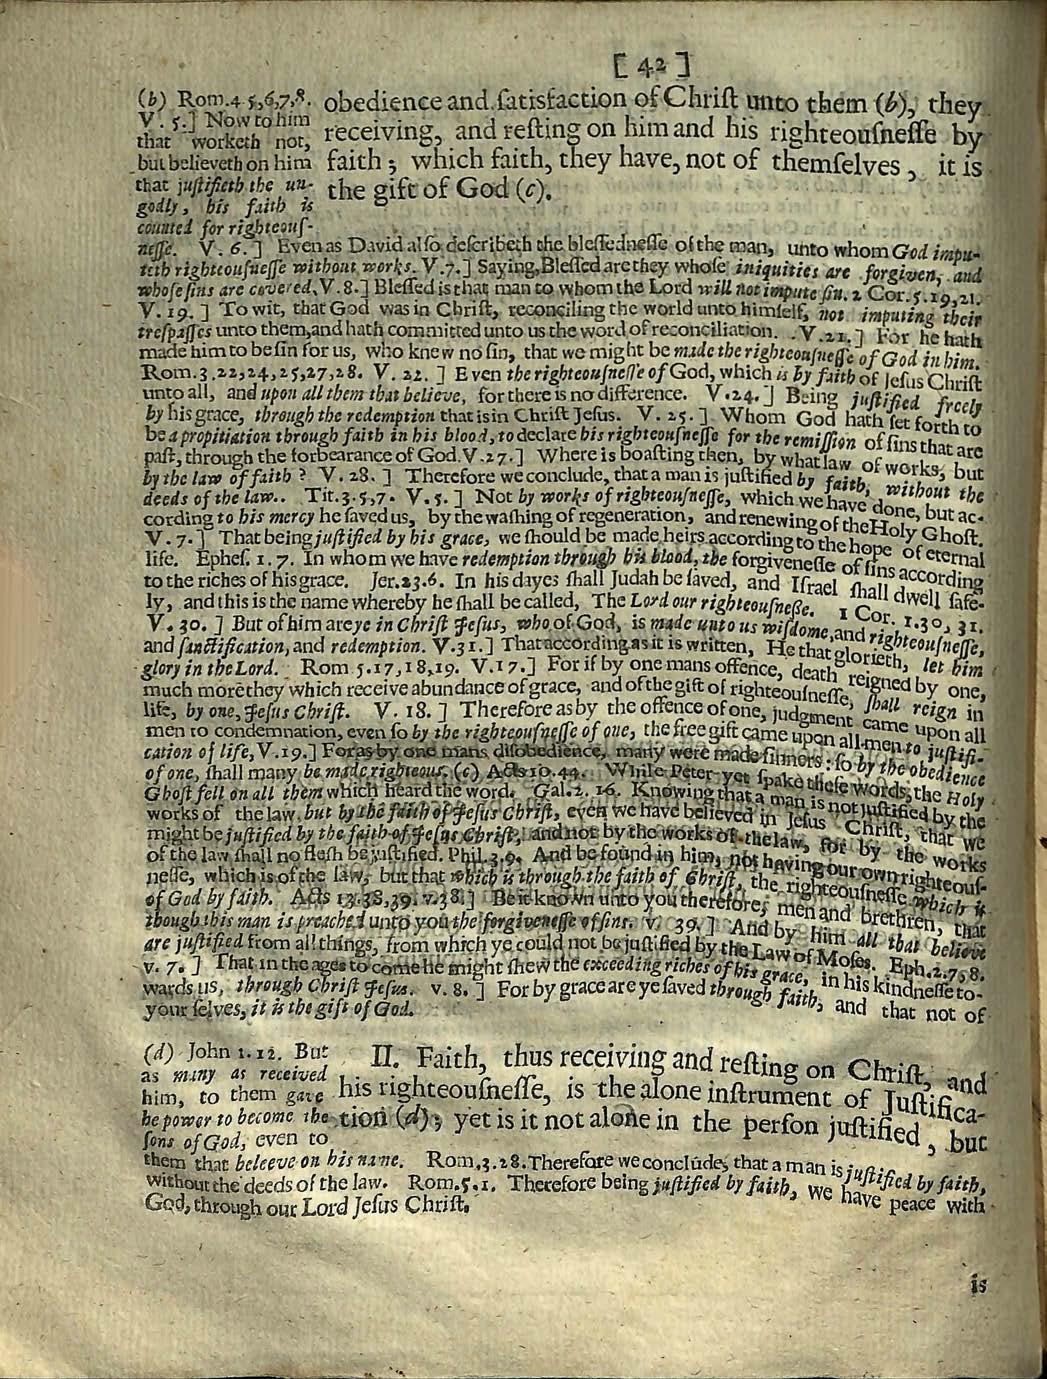 [ 42 ]
obedience and ſatisfaction of Chriſt unto them (b), they
receiving, and reſting on him and his righteouſneſſe by
faith ; which faith, they have, not of themſelves , it is
the gift of God (c).
(b) Rom.4 5,6,7,8.
V. 5.] Now to him
that worketh not,
but believeth on him
that juſtifieth the un-
godly, his faith is
counted for righteouſ-
neſſe. V. 6.] Even as David alſo deſcribeth the bleſſedneſſe of the man, unto whom God impu-
teth righteouſneſſe without works. V.7.] Saying, Bleſſed are they whoſe iniquities are forgiven, and
whoſe ſins are covered, V.8.] Bleſſed is that man to whom the Lord will not impute ſin. 2 Cor.5.19,21.
V. 19. ] To wit, that God was in Chriſt, reconciling the world unto himſelf, not imputing their
treſpaſſes unto them, and hath committed unto us the word of reconciliation. V.21.] For he hath
made him to be ſin for us, who knew no ſin, that we might be made the righteouſneſſe of God in him.
Rom.3.22,24,25,27,28. V. 22. ] Even the righteouſneſſe of God, which is by faith of Jeſus Chriſt
unto all, and upon all them that believe, for there is no difference. V.24.] Being juſtified freely
by his grace, through the redemption that is in Chriſt Jeſus. V. 25.] Whom God hath ſet forth to
be a propitiation through faith in his blood, to declare his righteouſneſſe for the remiſſion of ſins that are
paſt, through the forbearance of God. V.27.] Where is boaſting then, by what law of works, but
by the law of faith ? V. 28. ] Therefore we conclude, that a man is juſtified by faith, without the
deeds of the law.. Tit.3.5,7. V.5.] Not by works of righteouſneſſe, which we have done, but ac-
cording to his mercy he ſaved us, by the waſhing of regeneration, and renewing of the Holy Ghoſt.
V. 7.] That being juſtified by his grace, we ſhould be made heirs according to the hope of eternal
life. Epheſ. 1. 7. In whom we have redemption through his blood, the forgiveneſſe of ſins according
to the riches of his grace. Jer.23.6. In his dayes ſhall Judah be ſaved, and Iſrael ſhall dwell ſafe-
ly, and this is the name whereby he ſhall be called, The Lord our righteouſneße. 1 Cor. 1.30, 31.
V. 30. ] But of him are ye in Chriſt Jeſus, who of God, is made unto us wiſdome, and righteouſneſſe,
and ſanctification, and redemption. V.31.] That according as it is written, He that glorieth, let him
glory in the Lord. Rom 5.17,18,19. V.17.] For if by one mans offence, death reigned by one,
much more they which receive abundance of grace, and of the gift of righteouſneſſe, ſhall reign in
life, by one, Jeſus Chriſt. V. 18. ] Therefore as by the offence of one, judgment came upon all
men to condemnation, even ſo by the righteouſneſſe of one, the free gift came upon all men to juſtifi-
cation of life, V.19.] For as by one mans diſobedience, many were made ſinners : ſo by the obedience
of one, ſhall many be made righteous. (c) Acts 10. 44. While Peter yet ſpake theſe words, the Holy
Ghoſt fell on all them which heard the word. Gal.2. 16. Knowing that a man is not juſtified by the
works of the law, but by the faith of Jeſus Chriſt, even we have believed in Jeſus Chriſt, that we
might be juſtified by the faith of Jeſus Chriſt, and not by the works of the law, for by the works
of the law ſhall no fleſh be juſtified. Phil.3.9. And be found in him, not having our own righteouſ-
neſſe, which is of the law, but that which is through the faith of Chriſt, the righteouſneſſe which is
of God by faith. Acts 13.38,39. v.38.] Be it known unto you therefore, men and brethren, that
though this man is preached unto you the forgiveneſſe of ſins. v. 39.] And by him all that believe
are juſtified from all things, from which ye could not be juſtified by the Law of Moſes. Eph.2.7,8.
v. 7. ] That in the ages to come he might ſhew the exceeding riches of his grace, in his kindneſſe to-
wards us, through Chriſt Jeſus. v. 8. ] For by grace are ye ſaved through faith, and that not of
your ſelves, it is the gift of God.
II. Faith, thus receiving and reſting on Chriſt, and
his righteouſneſſe, is the alone inſtrument of Juſtifica-
tion (d); yet is it not alone in the perſon juſtified , but
(d) John 1.12. But
as many as received
him, to them gave
he power to become the
ſons of God, even to
them that beleeve on his name. Rom.3.28. Therefore we conclude, that a man is juſtified by faith,
without the deeds of the law. Rom.5.1. Therefore being juſtified by faith, we have peace with
God, through our Lord Jeſus Chriſt.
is